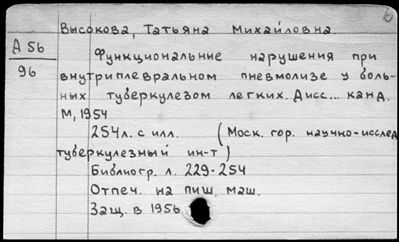 Высокова, Татьяна Михайловна.
А 56
96
Функциональные нарушения при
внутриплевральном пневмолизе у боль-
ных туберкулезом легких. Дисс... канд.
М, 1954
254л. с илл. (Моск. гор. научно-исслед
туберкулезный ин-т)
Библиогр. л. 229-254
Отпеч. на пиш. маш.
Защ. в 1956